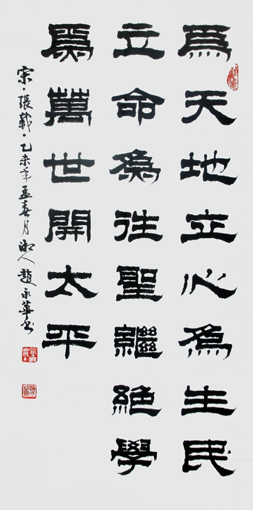 爲天地立心為生民
立命為往聖繼絕學
爲萬世開太平
宋·張載·乙未年孟春月湘人趙永華書